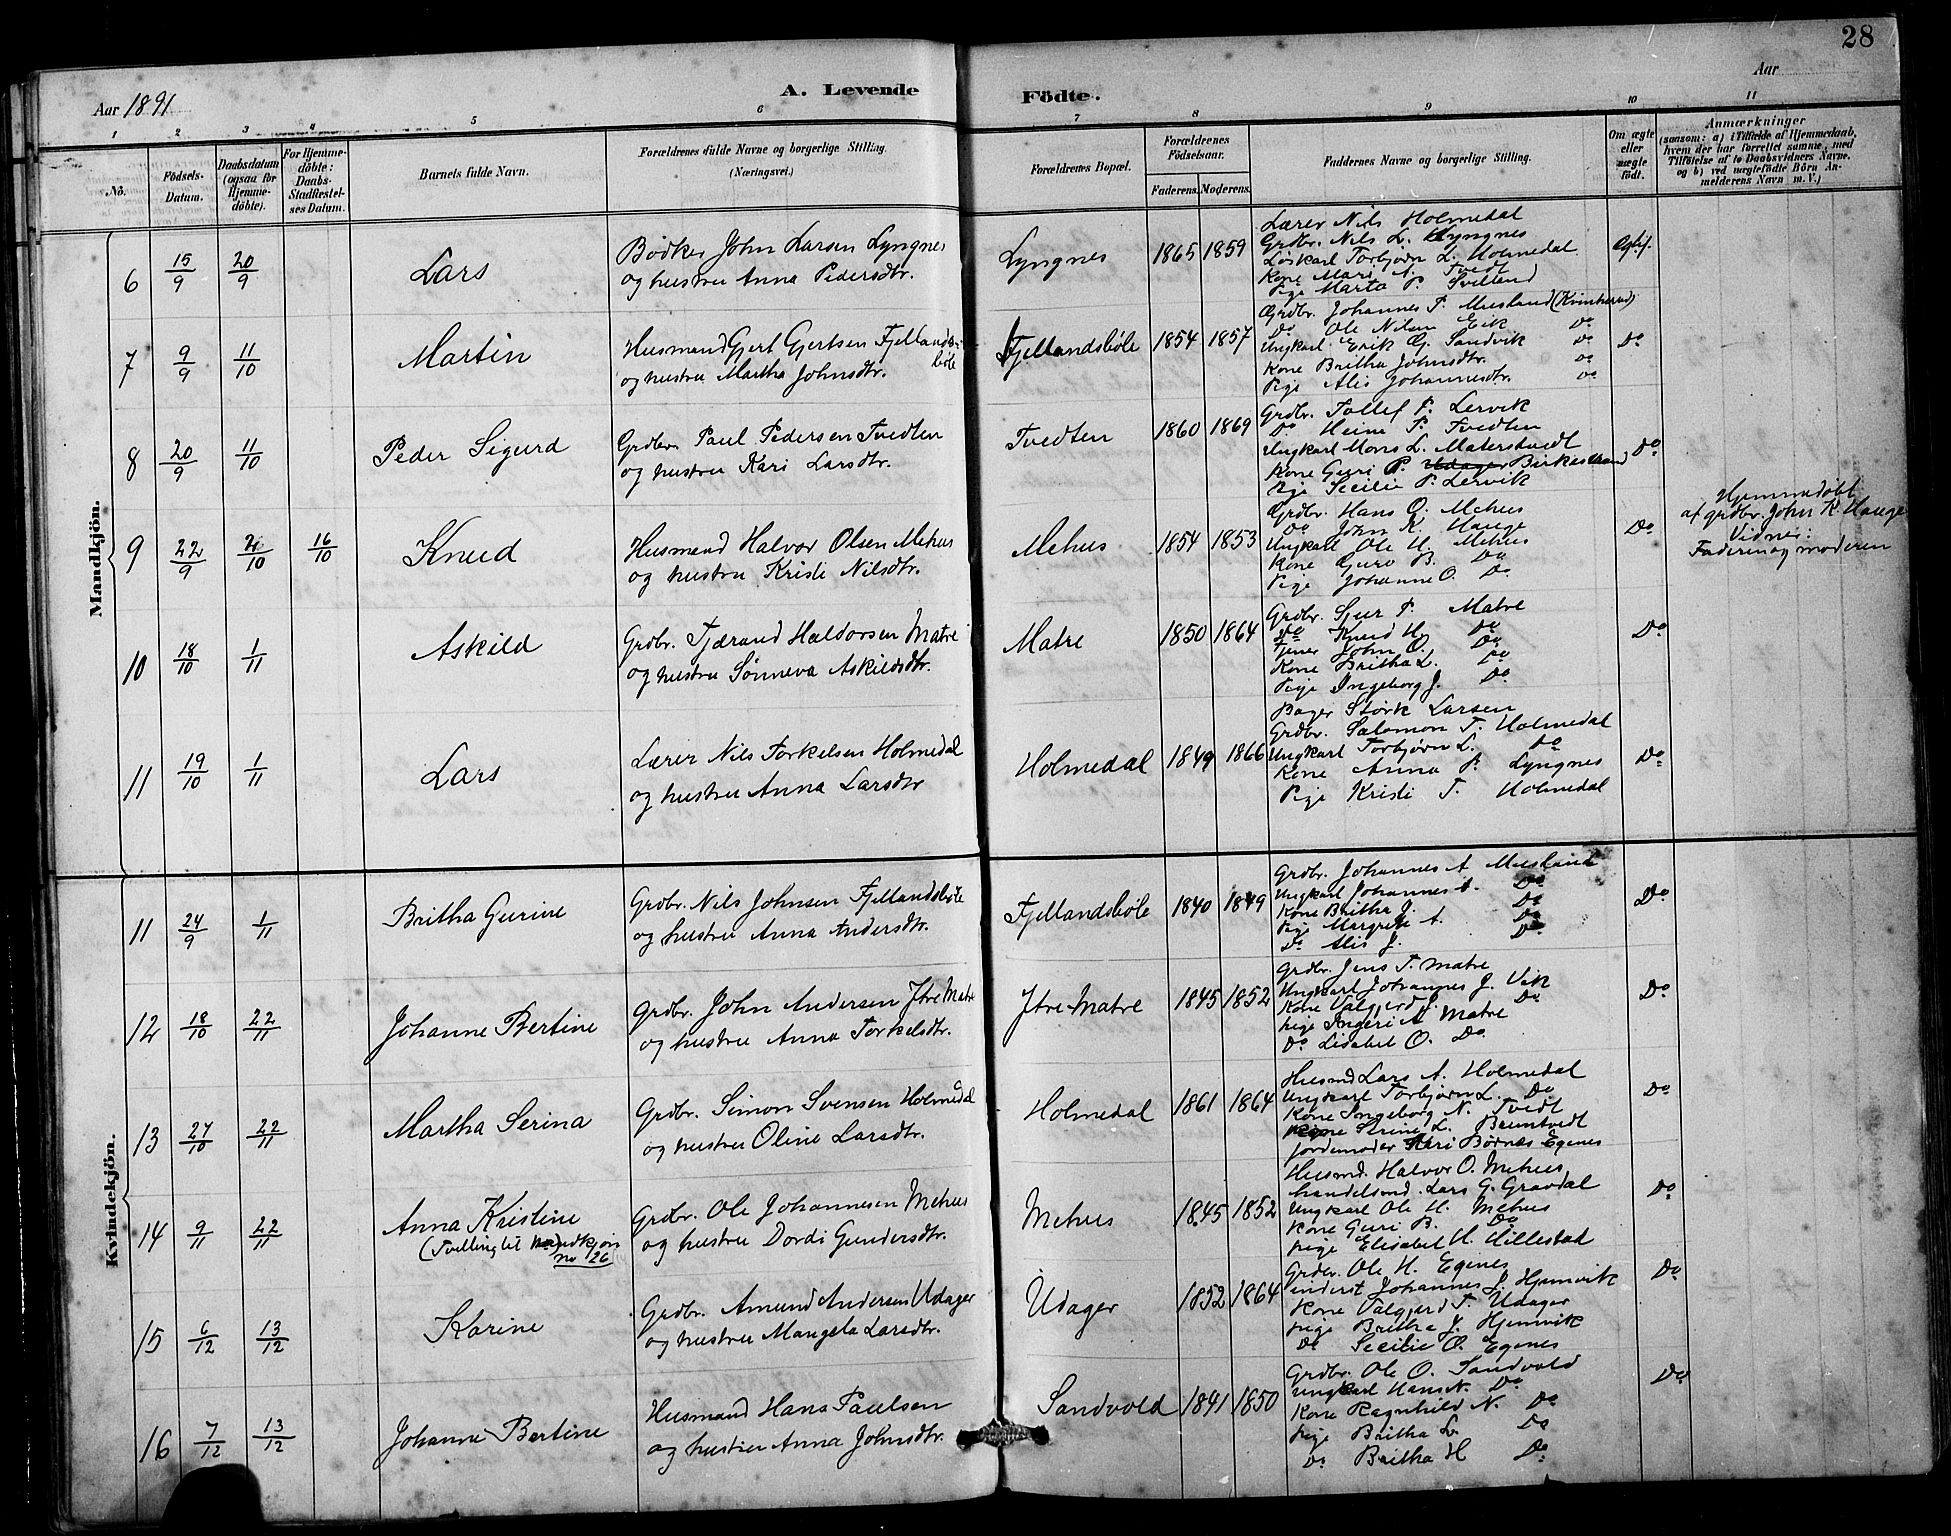 28
Aar 1891
A. Levende Födte.
Aar
1 2 3 4 5 6 7 8 9 10 11
No.
Födsels-Datum.
Daabsdatum (ogsaa for Hjemme-döbte).
For Hjemme-döbte: Daabs-Stadfæstel-ses Datum.
Barnets fulde Navn.
Forældrenes fulde Navne og borgerlige Stilling.
(Næringsvei.)
Forældrenes Bopæl.
Forældrenes Födselsaar.
Faderens. Moderens.
Faddernes Navne og borgerlige Stilling.
Om ægte eller uægte födt.
Anmærkninger
(saasom: a) i Tilfælde af Hjemmedaab, hvem der har forrettet samme, med Tilföielse af to Daabsvidners Navne. og b) ved uægtefödte Börn Anmelderens Navn m. V.)
Mandkjön.
6 15/9 20/9 Lars
Bødker John Larsen Lyngnes
og hustru Anna Pedersdtr.
Lyngnes 1865 1859
Lærer Nils Holmedal
Grdbr. Nils L. Lyngnes
Løskarl Torbjørn L. Holmedal
Kone Mari A. Tvedt
Pige Marta P. Svelland
7 9/9 11/10 Martin
Husmand Gjert Gjertsen Fjellandsbøle
og hustru Martha Johnsdtr.
Fjellandsbøle 1854 1857
Grdbr. Johannes P. Musland (Kvinherad)
Do Ole Nilsen Eik Do
Ungkarl Erik G. Sandvik Do
Kone Britha Johnsdtr. Do
Pige Alis Johannesdtr. Do
Do
8 20/9 11/10 Peder Sigurd
Grdbr. Paul Pedersen Tvedten
og hustru Kari Larsdtr.
Tvedten 1860 1869
Grdbr. Tollef P. Lervik
Do Heine P. Tvedten
Ungkarl Mons L. Materstvedt
Kone Guri P. Udager Birkestrand
Pige Secilie P. Lervik
Do
9 22/9 2/10 16/10 Knud
Husmand Halvor Olsen Mehus
og hustru Kristi Nilsdtr.
Mehus 1854 1853
Grdbr. Hans O. Mehus
Do John K. Hauge
Ungkarl Ole H. Mehus
Kone Guro B. Do
Pige Johanne O. Do
Do
Hjemmedøbt
af grdbr. John K. Hauge
Vidner:
Faderen og moderen
10 18/10 1/11 Askild
Grdbr. Tjærand Haldorsen Matre
og hustru Sønneva Askildsdtr.
Matre 1850 1864
Grdbr. Sjur P. Matre
Do Knud H. Do
Tjener John O. Do
Kone Britha L. Do
Pige Ingeborg J. Do
Do
11 19/10 1/11 Lars
Lærer Nils Torkelsen Holmedal
og hustru Anna Larsdtr
Holmedal 1849 1866
Bager Størk Larsen
Grdbr. Salomon T. Holmedal
Ungkarl Torbjørn L. Do
Kone Anna P. Lyngnes
Pige Kristi T. Holmedal
Do
Kvindekjön.
11 24/9 1/11 Britha Gurine
Grdbr. Nils Johnsen Fjellandsbøle
og hustru Anna Andersdtr.
Fjellandsbøle 1840 1849
Grdbr. Johannes A Musland
Ungkarl Johannes A. Do
Kone Britha J. Do
Pige Margrete A. Do
Do Alis J. Do
Do
12 18/10 22/11 Johanne Bertine
Grdbr. John Andersen Ytre Matre
og hustru Anna Torkelsdtr.
Ytre Matre 1845 1852
Grdbr. Jens T. Matre
Ungkarl Johannes J. Vik
Kone Valgjerd J. Do
Pige Ingeri A. Matre
Do Lisabet O. Do
Do
13 27/10 22/11 Martha Serina
Grdbr. Simon Svensen Holmedal
og hustru Oline Larsdtr.
Holmedal 1861 1864
Husmd Lars A. Holmedal
Ungkarl Torbjørn L. Do
Kone Ingeborg N. Tvedt
Kone Strine L. Bruntvedt
Jordemoder Kari Børnæs Egenes
Do
14 9/11 22/11 Anna Kristine
(Tvilling til Mandkjøn
no 26
Grdbr. Ole Johannesen Mehus
og hustru Dordi Gundersdtr.
Mehus 1845 1852
Husmd. Halvor O. Mehus
handelsmd. Lars G. Gravdal
Ungkarl Ole H. Mehus
Kone Guri B. Do
Pige Elisabet H. Hillestad
Do
15 6/12 13/12 Karine
Grdbr. Amund Andersen Udager
og hustru Mangela Larsdtr.
Udager 1852 1864
Grdbr. Ole H. Egenes
inderst Johannes J. Hjemvik
Kone Valgjerd T. Udager
Pige Britha J. Hjemvik
Do Secilie O. Egenes
Do
16 7/12 13/12 Johanne Bertine
Husmand Hans Paulsen
og hustru Anna Johnsdtr.
Sandvold 1841 1850
Grdbr. Ole O. Sandvold
Ungkarl Hans N. Do
Kone Ragnhild N. Do
Pige Britha L. Do
Do Britha H Do
Do